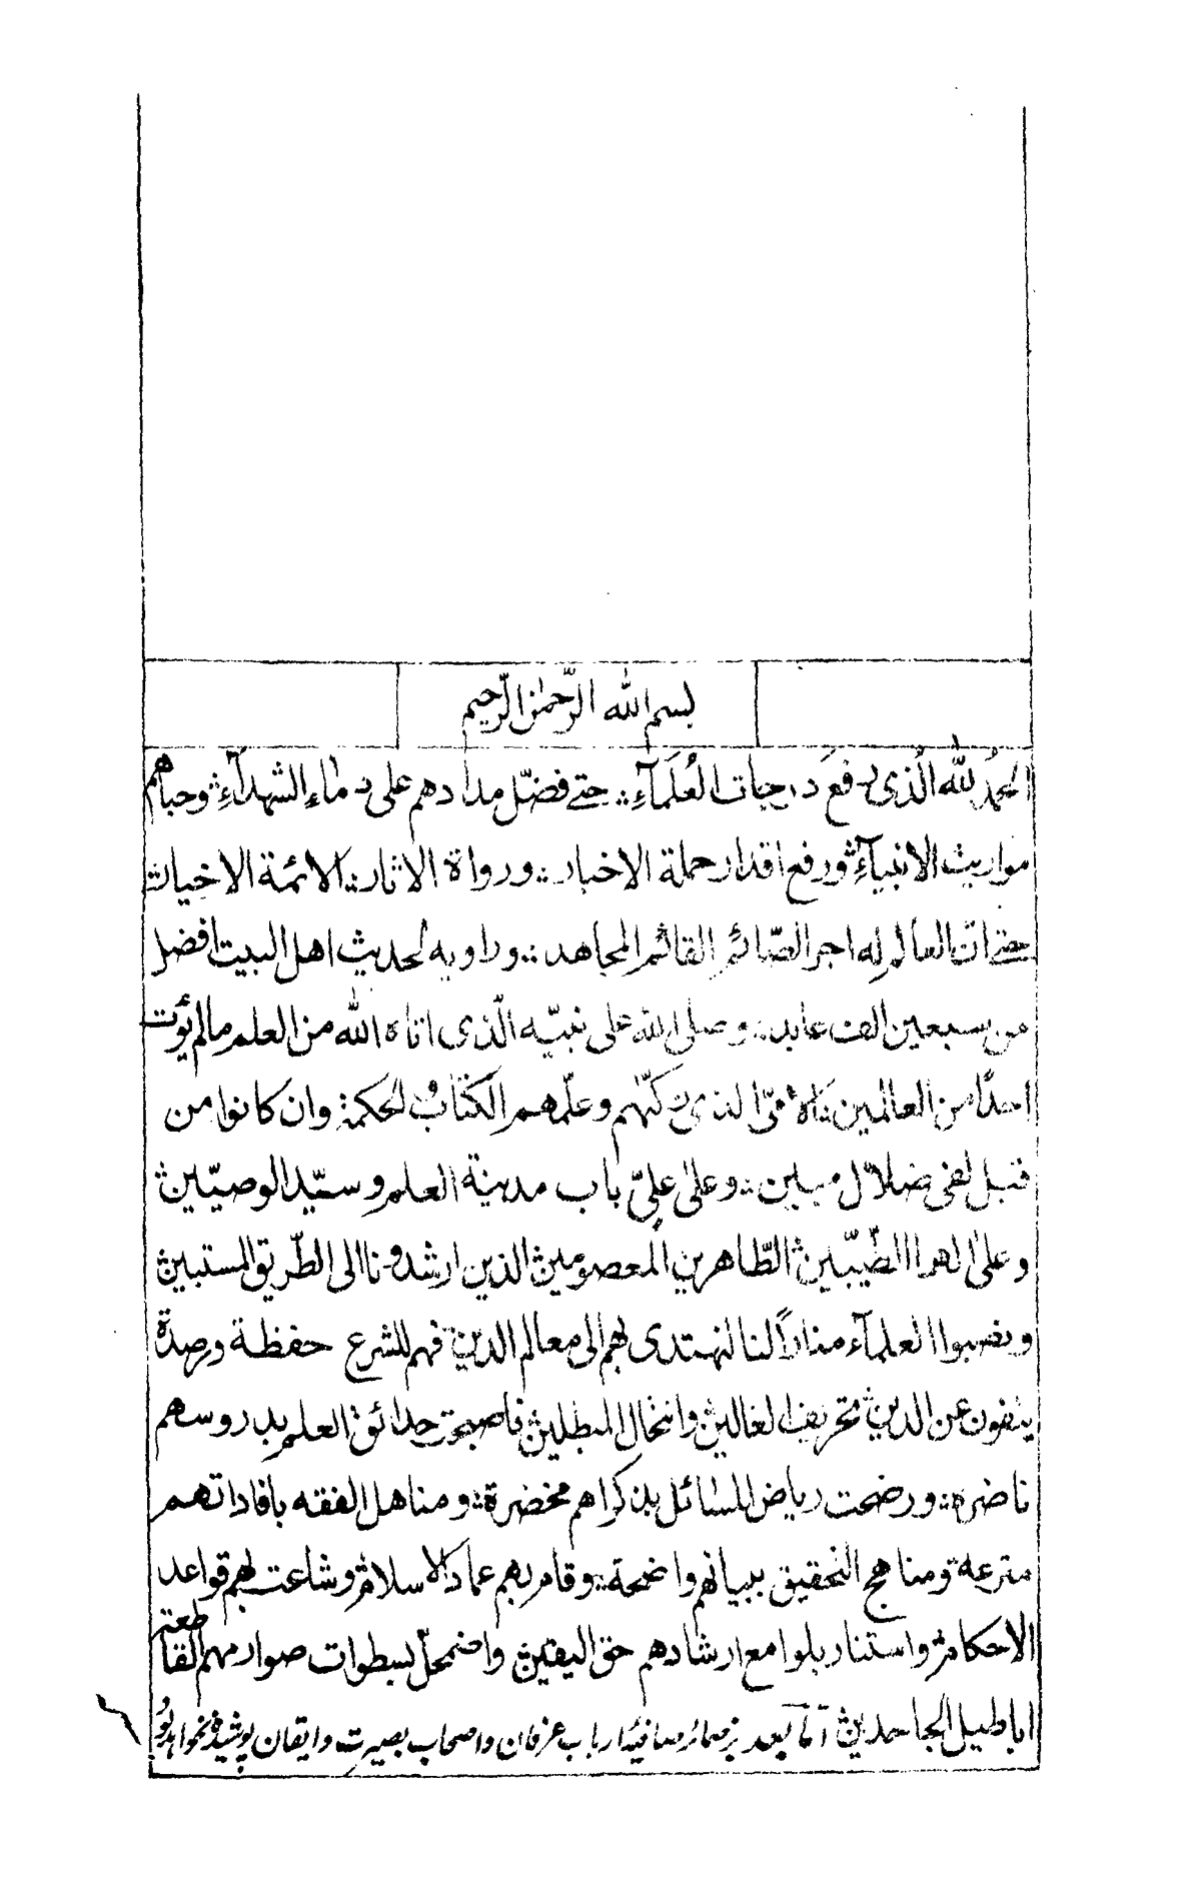 بسم الله الرّحمٰن الرّحيم
الحمدُ لله الّذى رفعَ درجات العُلَمآءِ؞ حتے فضّل مدادهم على دماءِ الشهدآءِ؞ وحباهم
مواريث الانبيآءِ؞ ورفع اقدار حملة الاخبار؞ ورواة الاثار؞ كالائمة الاخيار؞
حتے ان العالم له اجر الصّائم القائم المجاهد؞ وراويه لحديث اهل البيت افضل
من سبعين الف عابد؞ وصلى الله على نبيّه الّذى اتاه الله من العلم مالم يؤت
احدًا من العالمين؞ الامّى الذى زكّٰهم وعلّمهم الكتاب والحكمة وان كانوا من
قبل لفى ضلال مبين؞ وعلىٰ علىّ باب مدينة العلم وسيّد الوصيّين؞
وعلىٰ الهما الطّيّبين؞ الطّاهرين المعصومين؞ الذين ارشدونا الى الطّريق المستبين؞
ونصبوا العلمآء مناراً لنا لنهتدى بهم الى معالم الدين؞ فهم للشرع حفظة ورصدة
ينفون عن الدين؞ تحريف الغالين؞ وانتحال المبطلين؞ فاصبحت حدائق العلم بدروسهم
ناضرة؞ ورضحت رياض المسائل بذكراهم مخضرة؞ ومناهل الفقه بافاداتهم
مترعة؞ ومناهج التحقيق ببيانهم واضحة؞ وقام بهم عماد الاسلام؞ وشاعت بهم قواعد
الاحكام؞ واستنار بلوامع ارشادهم حق اليقين؞ واضمحلّ بسطوات صوارمهم القاطعة
اباطيل الجاحدين؞ امّا بعد بر ضمائر صافيۂ ارباب عرفان واصحاب بصيرت وايقان پوشيده نخواهد بود